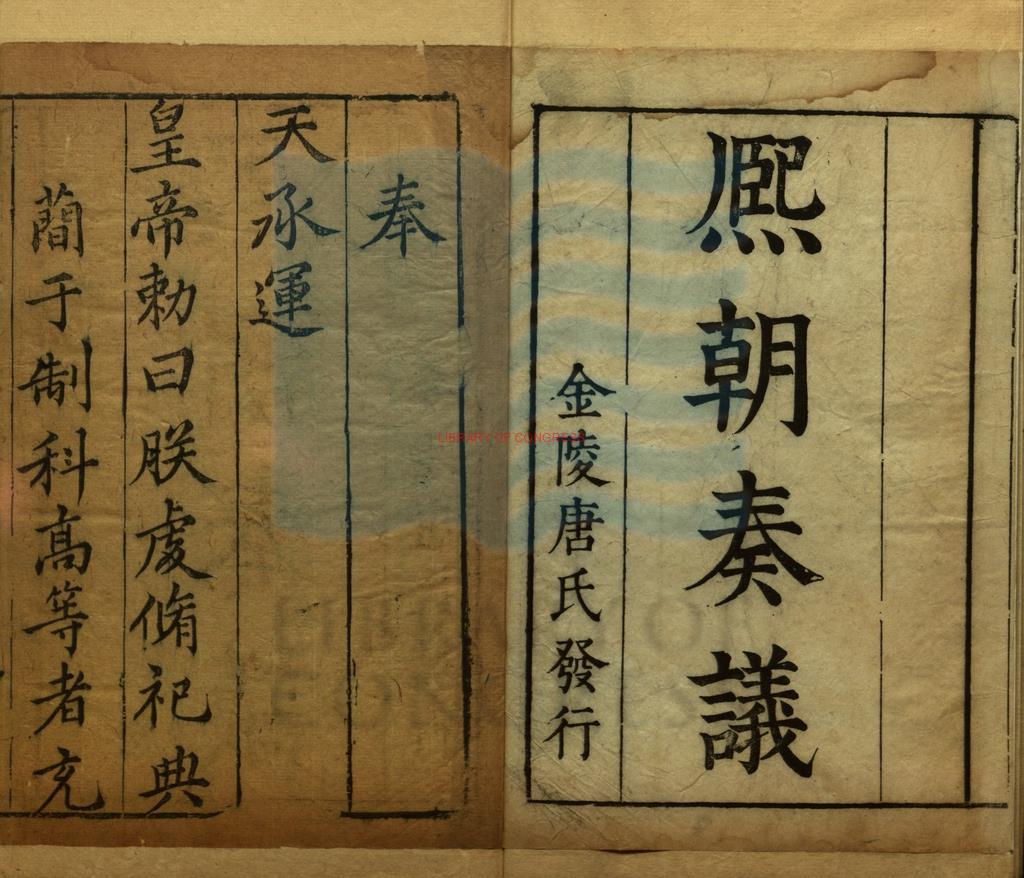 熈朝奏議
金陵唐氏發行
奉
天承運
皇帝勅曰朕虔脩祀典
蕳于制科髙等者充
LIBRARY OF CONGRESS